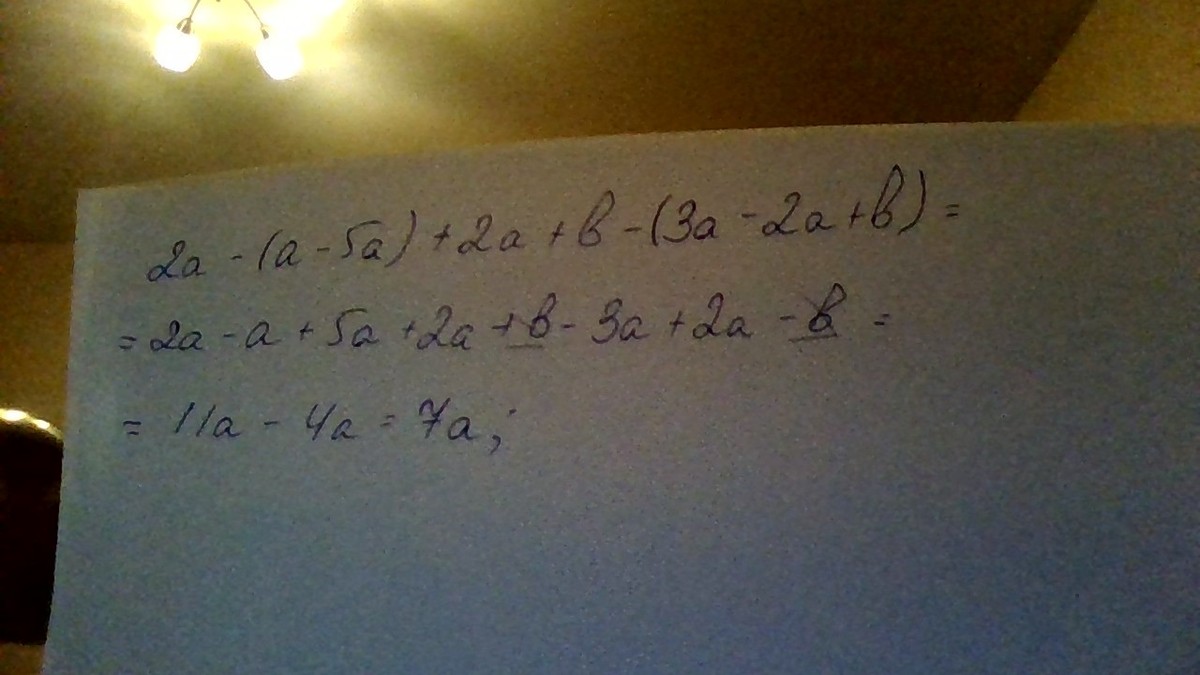 2a - (a - 5a) + 2a + b - (3a - 2a + b) =
= 2a - a + 5a + 2a + b - 3a + 2a - b =
= 11a - 4a = 7a;